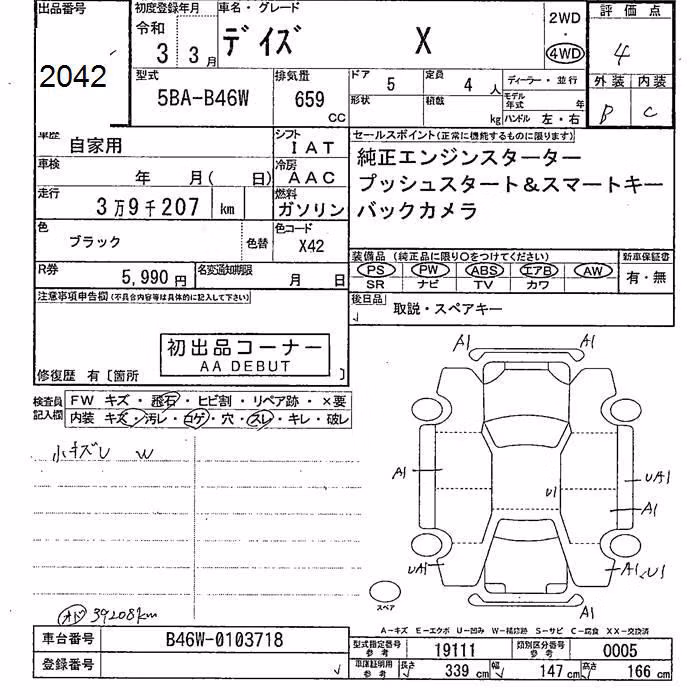 出品番号
2042
初度登録年月
令和
3 3月
車名・グレード
デイズ X
2WD
・
4WD
評価点
4
型式
5BA-B46W
排気量
659 CC
ドア
5
定員
4 人
ディーラー・並行
形状
積載
kg
モデル年式 年
ハンドル 左・右
外装 内装
B C
車歴
自家用
シフト
IAT
車検
年 月( 日)
冷房
AAC
走行
3万9千207 km
燃料
ガソリン
色
ブラック
色替
色コード
X42
R券
5,990円
名変通知期限
月 日
セールスポイント(正常に機能するものに限ります)
純正エンジンスターター
プッシュスタート&スマートキー
バックカメラ
装備品(純正品に限り○をつけてください)
PS PW ABS エアB AW
SR ナビ TV カワ
新車保証書
有・無
後日品
取説・スペアキー
注意事項申告欄(不具合内容等は具体的に記入して下さい)
初出品コーナー
AA DEBUT
修復歴 有〔箇所 〕
検査員
記入欄
FW キズ・飛石・ヒビ割・リペア跡・×要
内装 キズ・汚レ・コゲ・穴・スレ・キレ・破レ
小キズU W
オド 39208km
A1 A1
A1
UA1
U1
A1
UA1
A1,U1
A1
スペア
A-キズ E-エクボ U-凹み W-補修跡 S-サビ C-腐食 XX-交換済
車台番号
B46W-0103718
登録番号
型式指定番号
参考
19111
類別区分番号
参考
0005
車庫証明用
参考
長さ
339 cm
幅
147 cm
高さ
166 cm